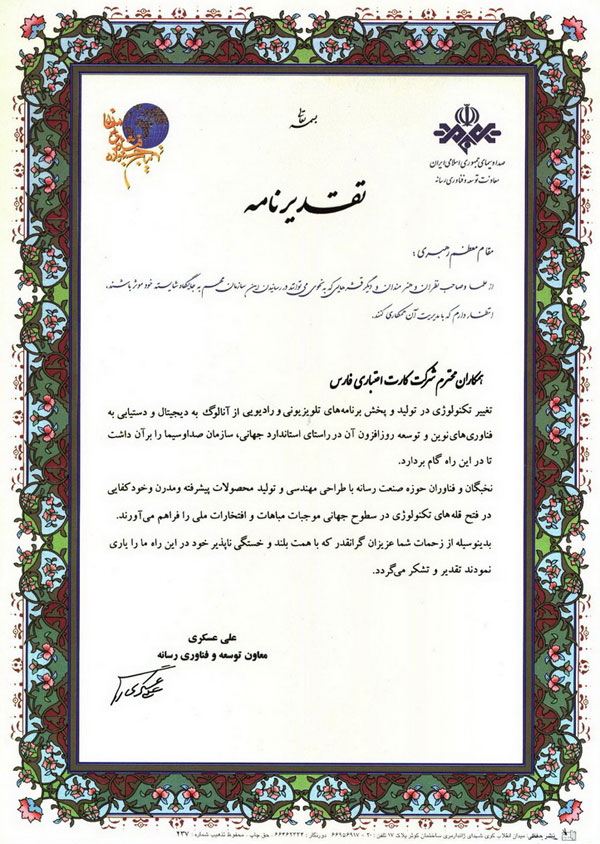 بسمه تعالی
صدا و سیمای جمهوری اسلامی ایران
معاونت توسعه و فناوری رسانه
تقدیرنامه
مقام معظم رهبری :
از علما و صاحب نظران و هنرمندان و دیگر قشرهایی که به نحوی می توانند در رساندن این سازمان مهم به جایگاه شایسته خود موثر باشند،
انتظار دارم که با مدیریت آن همکاری کنند.
همکاران محترم شرکت کارت اعتباری فارس
تغییر تکنولوژی در تولید و پخش برنامه‌های تلویزیونی و رادیویی از آنالوگ به دیجیتال و دستیابی به
فناوری‌های نوین و توسعه روزافزون آن در راستای استاندارد جهانی، سازمان صداوسیما را برآن داشت
تا در این راه گام بردارد.
نخبگان و فناوران حوزه صنعت رسانه با طراحی مهندسی و تولید محصولات پیشرفته ومدرن وخودکفایی
در فتح قله‌های تکنولوژی در سطوح جهانی موجبات مباهات و افتخارات ملی را فراهم می‌آورند.
بدینوسیله از زحمات شما عزیزان گرانقدر که با همت بلند و خستگی ناپذیر خود در این راه ما را یاری
نمودند تقدیر و تشکر می‌گردد.
علی عسکری
معاون توسعه و فناوری رسانه
نشر حافظی: میدان انقلاب کوی شهدای ژاندارمری ساختمان کوثر پلاک ۱۷ تلفن: ۲۰ - ۶۶۹۵۶۹۱۷ دورنگار: ۶۶۴۶۲۳۳۲ حق چاپ - محفوظ تذهیب شماره: ۲۳۷